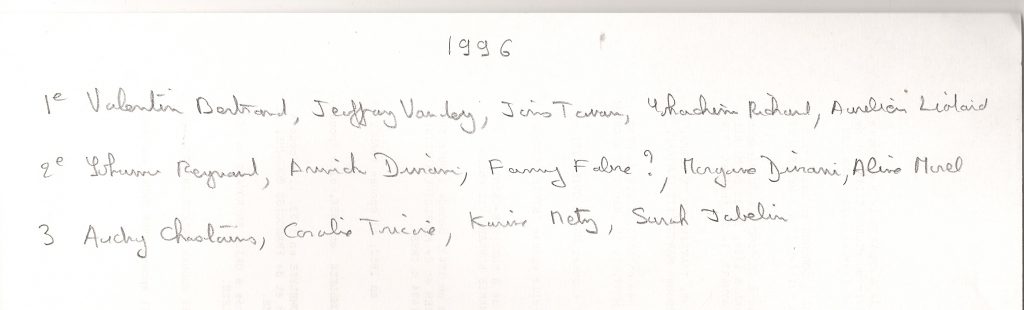 1996
1e Valentin Bertrand, Jeoffray Vandey, Joris Tavan, Richard, Aurélien Liotard
2e Johanna Reynaud, Annick Durani, Fanny Fabre ?, Morgane Durani, Aline Morel
3 Audrey Chastains, Coralie, Karine Metz, Sarah Jabelin